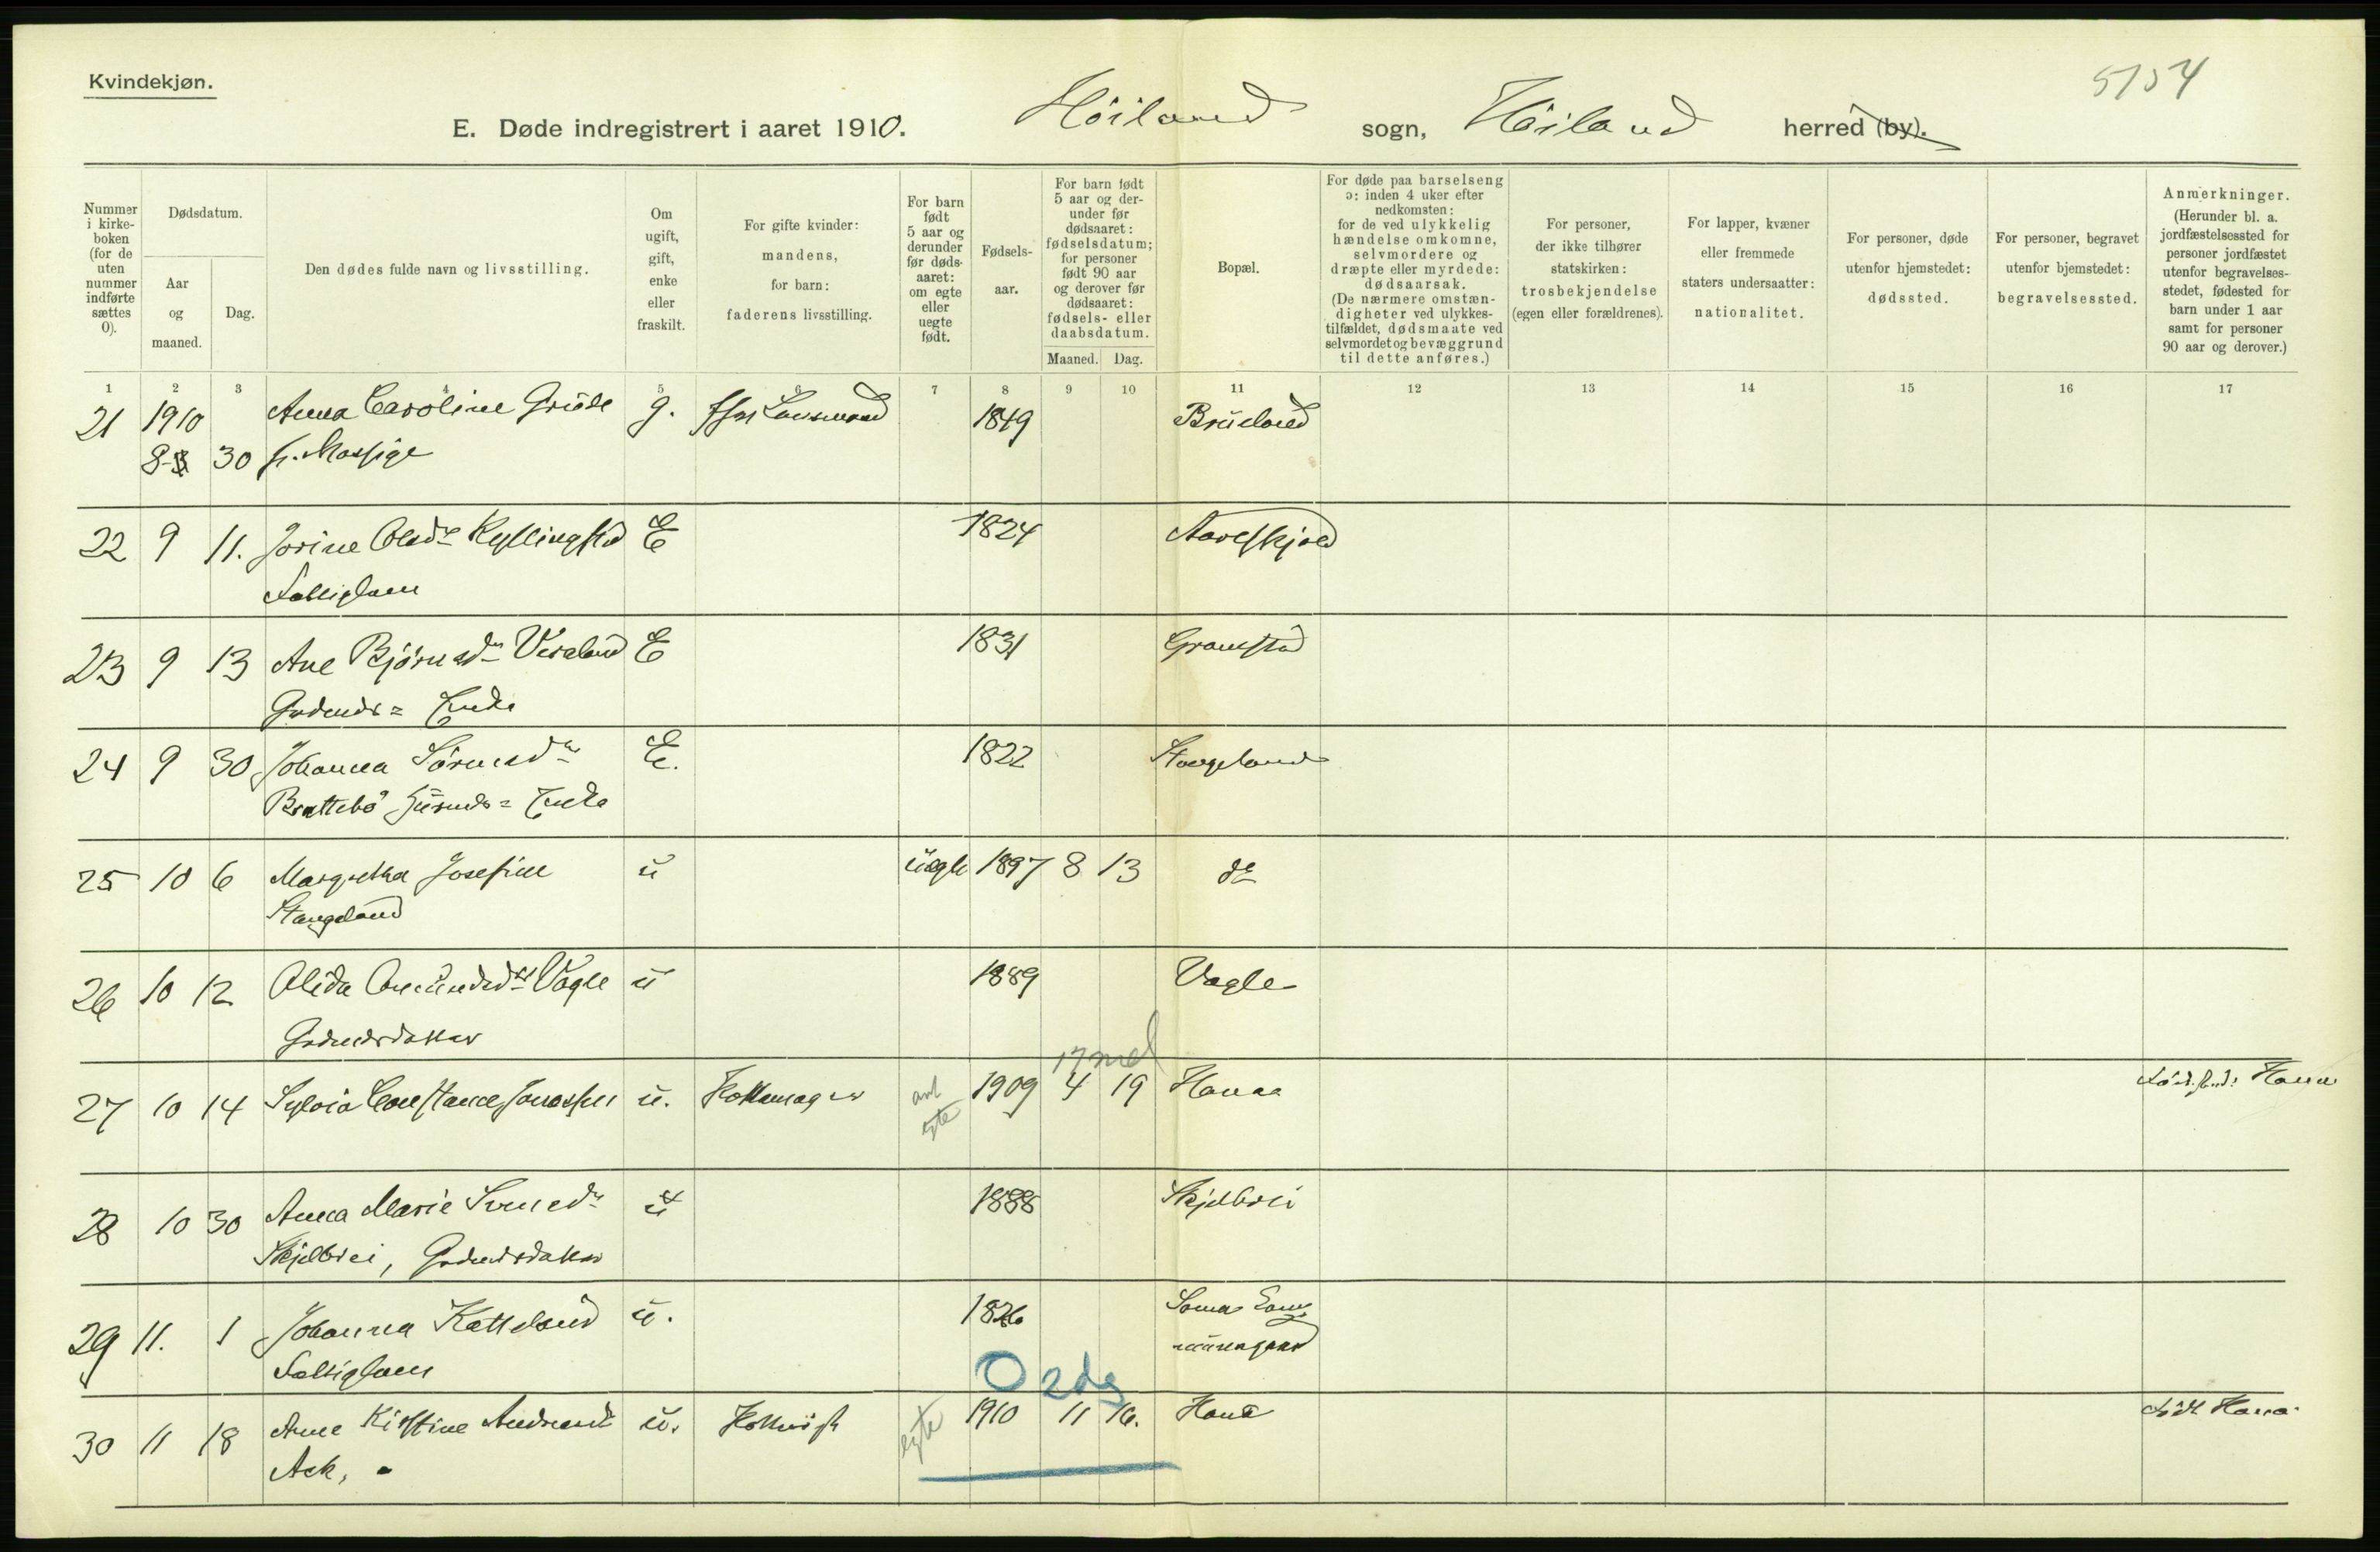 Kvindekjøn.
5154
E. Døde indregistrert i aaret 1910. Höiland sogn, Höiland herred (by).
Nummer i kirkeboken (for de uten nummer indførte sættes 0).
Dødsdatum.
Aar og maaned.
Dag.
Den dødes fulde navn og livsstilling.
Om ugift, gift, enke eller fraskilt.
For gifte kvinder: mandens, for barn: faderens livsstilling.
For barn født 5 aar og derunder før dødsaaret: om egte eller uegte født.
Fødselsaar.
For barn født 5 aar og derunder før dødsaaret: fødselsdatum; for personer født 90 aar og derover før dødsaaret: fødsels- eller daabsdatum.
Maaned. Dag.
Bopæl.
For døde paa barselseng ɔ: inden 4 uker efter nedkomsten: for de ved ulykkelig hændelse omkomne, selvmordere og dræpte eller myrdede: dødsaarsak. (De nærmere omstændigheter ved ulykkestilfældet, dødsmaate ved selvmordet og bevæggrund til dette anføres.)
For personer, der ikke tilhører statskirken: trosbekjendelse (egen eller forældrenes).
For lapper, kvæner eller fremmede staters undersaatter: nationalitet.
For personer, døde utenfor hjemstedet: dødssted.
For personer, begravet utenfor bjemstedet: begravelsessted.
Anmerkninger. (Herunder bl. a. jordfæstelsessted for personer jordfæstet utenfor begravelsesstedet, fødested for barn under 1 aar samt for personer 90 aar og derover.)
1 2 3 4 5 6 7 8 9 10 11 12 13 14 15 16 17
21 1910 Anna Caroline Gröde g. 1849 Brüeland
8 30 f. Massige
22 9 11. Jorine Olsdr Kyllingstad E 1824 Aareskjold
Fattiglem
23 9 13 Ane Bjørnsdr Veraland E 1831 Gramstad
Grdmds= Enke
24 9 30 Johanna Sörensdr E. 1822 Stangeland
Brattebö Husmds= Enke
25 10 6 Margretha Josefine ü üegte 1897 8 13 do
Stangeland
26 10 12 Alida Amündsdr Vagle ü 1889 Vagle
Grdmdsdatter
17 md
27 10 14 Sylvia Constance Jonassen ü. Pottemager egte 1909 4 19 Hanaa Födested: Hana
28 10 30 Anna Marie Svensdr ü 1888 Skjelbrei
Skjelbrei, Grdmdsdatter
29 11. 1 Johanna Katteland ü. 1826 Soma
Fattiglem
0 2 dg
30 11 18 Ane Kirstine ü. egte 1910 11 16. Hana Födt Hana
Ask,